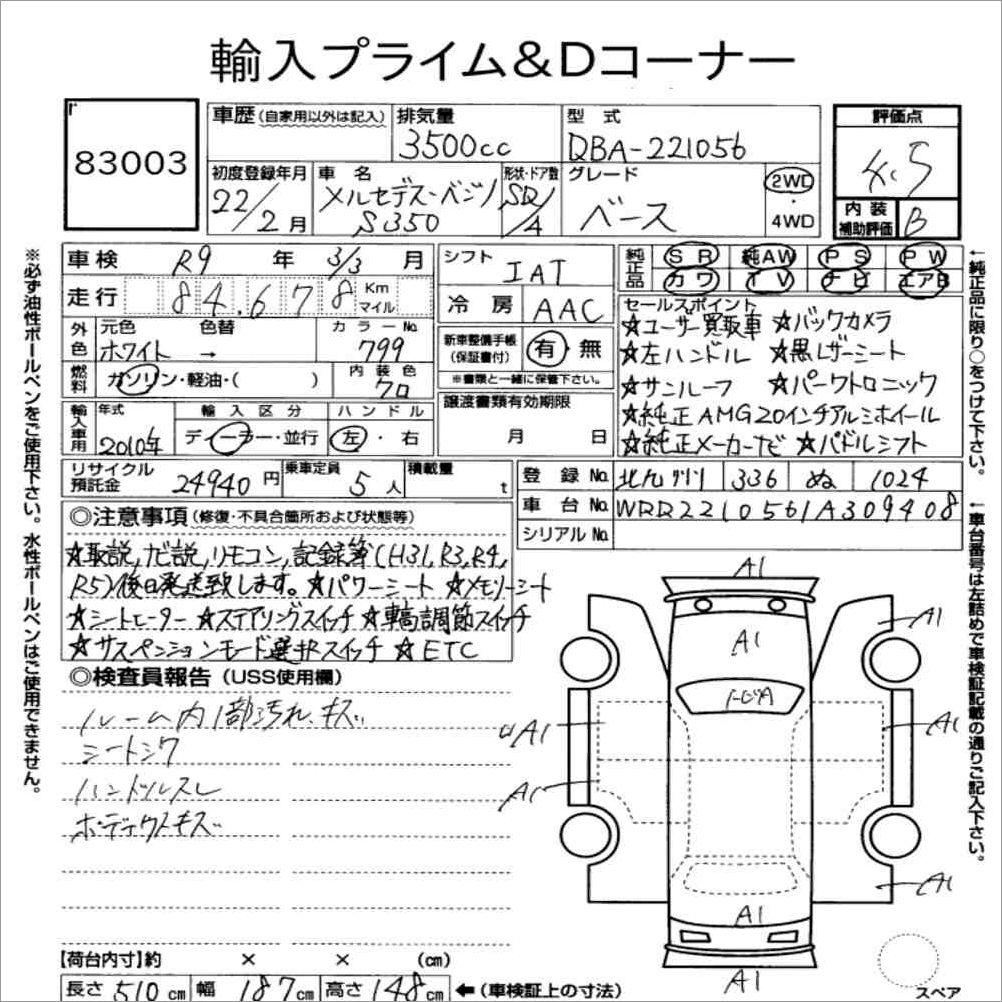 輸入プライム&Dコーナー
83003
車歴(自家用以外は記入)
排気量
3500cc
型式
DBA-221056
評価点
4.5
初度登録年月
22/2月
車名
メルセデス-ベンツ
S350
形状・ドア数
SD/4
グレード
ベース
2WD
・
4WD
内装
補助評価
B
※必ず油性ボールペンをご使用下さい。水性ボールペンはご使用できません。
車検 R9年 3/3月
走行 84,678 Km マイル
シフト
IAT
冷房 AAC
純正品
SR 純AW PS PW
カワ TV ナビ エアB
セールスポイント
☆ユーザー買取車 ☆バックカメラ
☆左ハンドル ☆黒レザーシート
☆サンルーフ ☆パークトロニック
☆純正AMG20インチアルミホイール
☆純正メーカーナビ ☆パドルシフト
外色
元色 色替 カラーNo.
ホワイト → 799
燃料
ガソリン・軽油・( )
内装色
クロ
新車整備手帳
(保証書付)
有・無
※書類と一緒に保管下さい。
輸入車用
年式
2010年
輸入区分
ディーラー・並行
ハンドル
左・右
譲渡書類有効期限
月 日
リサイクル
預託金
24940円
乗車定員
5人
積載量
t
登録No. 北九州 336 ぬ 1024
車台No. WDD2210561A309408
シリアルNo.
←純正品に限り○をつけて下さい。
←車台番号は左詰めで車検証記載の通りご記入下さい。
◎注意事項(修復・不具合箇所および状態等)
☆取説,ナビ説,リモコン,記録簿(H31,R3,R4,
R5)後日発送致します。☆パワーシート ☆メモリーシート
☆シートヒーター ☆ステアリングスイッチ ☆車高調節スイッチ
☆サスペンションモード選択スイッチ ☆ETC
◎検査員報告(USS使用欄)
ルーム内1部汚れ、キズ
シートシワ
ハンドルスレ
ボディクスキズ
A1
A1
A1
A1
A1
A1
A1
A1
A1
A1
【荷台内寸】約 × × (cm)
長さ510cm 幅187cm 高さ148cm ←(車検証上の寸法)
スペア